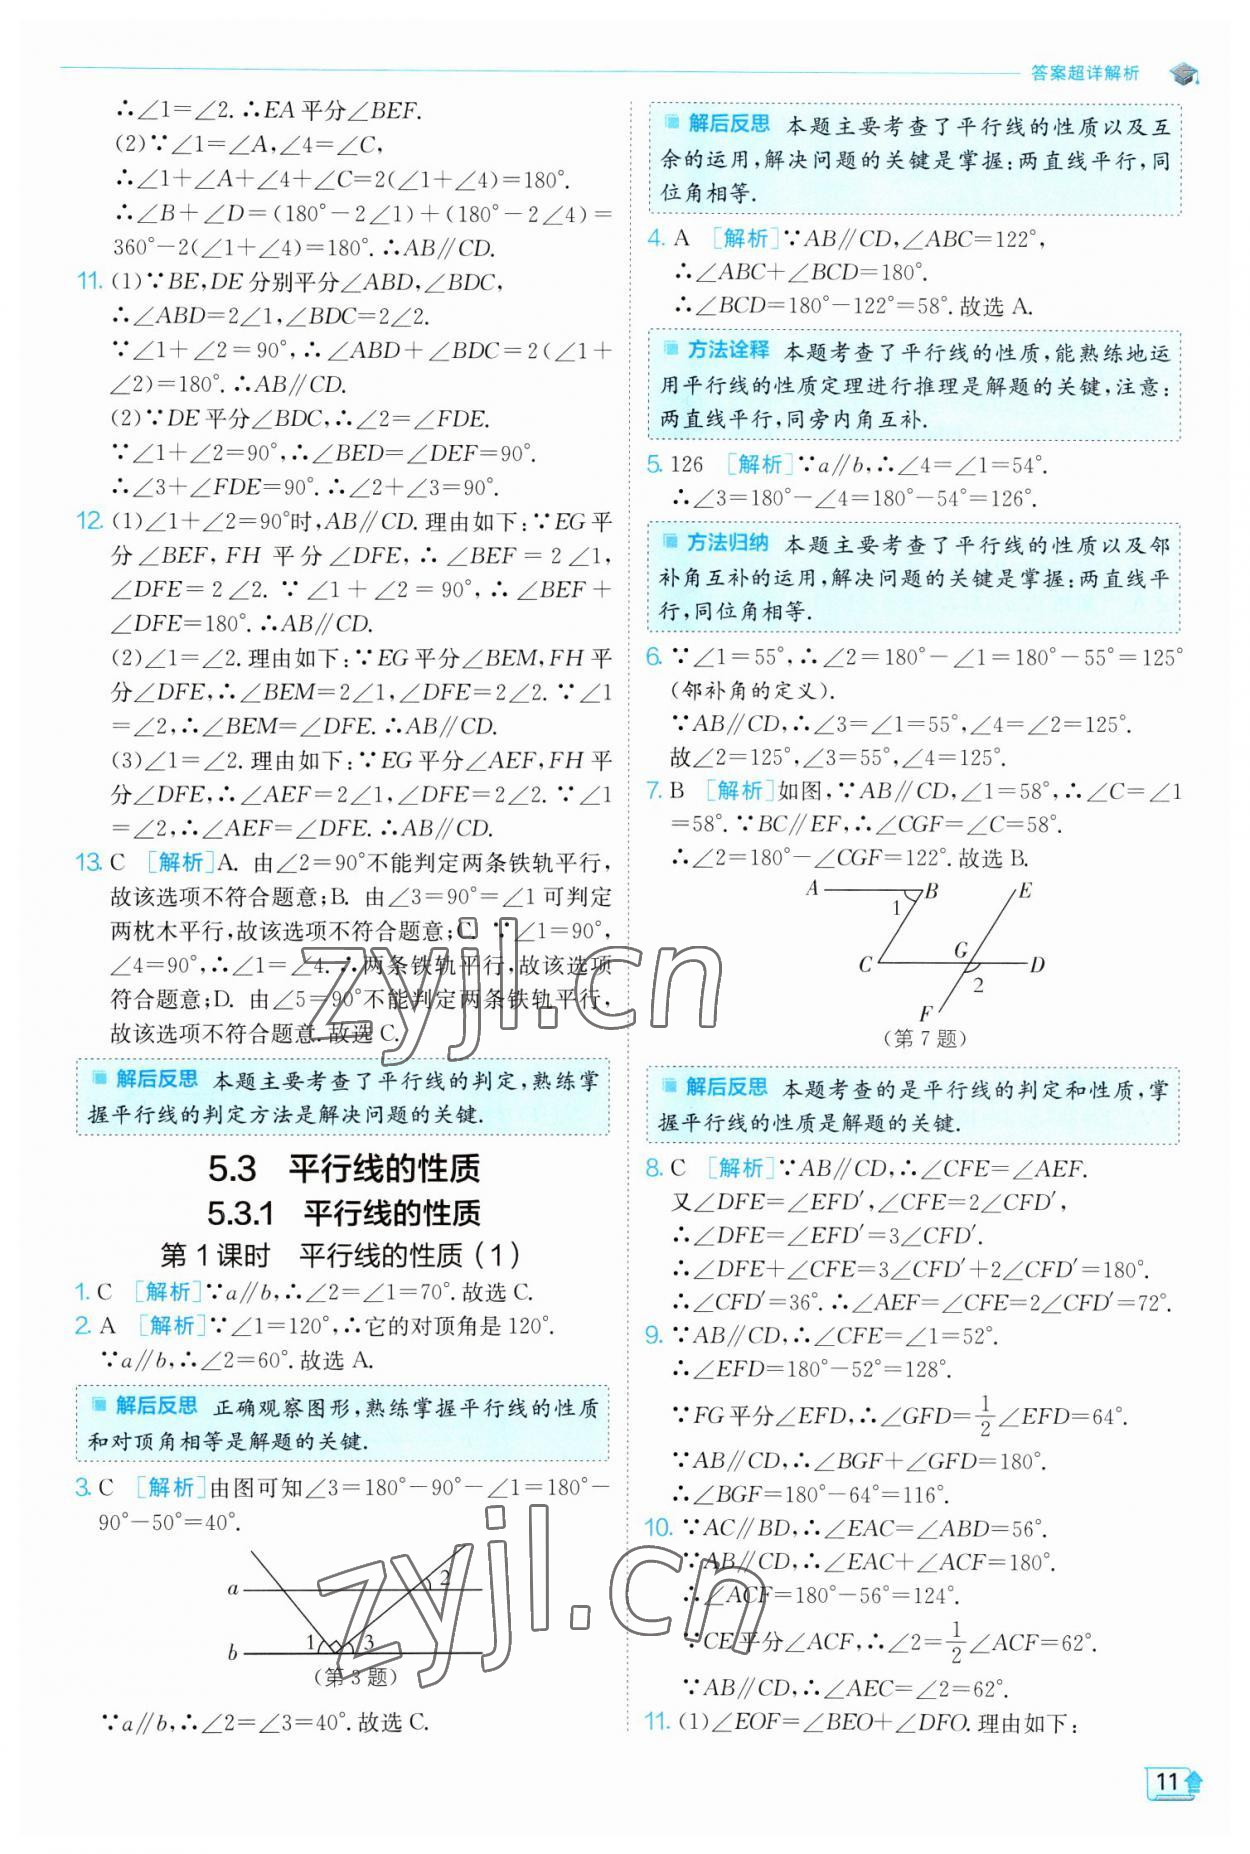 答案超详解析
∴∠1=∠2.∴EA平分∠BEF.
(2)∵∠1=∠A,∠4=∠C,
∴∠1+∠A+∠4+∠C=2(∠1+∠4)=180°.
∴∠B+∠D=(180°-2∠1)+(180°-2∠4)=
360°-2(∠1+∠4)=180°.∴AB∥CD.
11. (1)∵BE,DE分别平分∠ABD,∠BDC,
∴∠ABD=2∠1,∠BDC=2∠2.
∵∠1+∠2=90°,∴∠ABD+∠BDC=2(∠1+
∠2)=180°.∴AB∥CD.
(2)∵DE平分∠BDC,∴∠2=∠FDE.
∵∠1+∠2=90°,∴∠BED=∠DEF=90°.
∴∠3+∠FDE=90°.∴∠2+∠3=90°.
12. (1)∠1+∠2=90°时,AB∥CD.理由如下:∵EG平
分∠BEF,FH平分∠DFE,∴∠BEF=2∠1,
∠DFE=2∠2.∵∠1+∠2=90°,∴∠BEF+
∠DFE=180°.∴AB∥CD.
(2)∠1=∠2.理由如下:∵EG平分∠BEM,FH平
分∠DFE,∴∠BEM=2∠1,∠DFE=2∠2.∵∠1
=∠2,∴∠BEM=∠DFE.∴AB∥CD.
(3)∠1=∠2.理由如下:∵EG平分∠AEF,FH平
分∠DFE,∴∠AEF=2∠1,∠DFE=2∠2.∵∠1
=∠2,∴∠AEF=∠DFE.∴AB∥CD.
13. C [解析]A. 由∠2=90°不能判定两条铁轨平行,
故该选项不符合题意;B. 由∠3=90°=∠1可判定
两枕木平行,故该选项不符合题意;C. ∵∠1=90°,
∠4=90°,∴∠1=∠4.∴两条铁轨平行,故该选项
符合题意;D. 由∠5=90°不能判定两条铁轨平行,
故该选项不符合题意.故选C.
解后反思 本题主要考查了平行线的判定,熟练掌
握平行线的判定方法是解决问题的关键.
5.3 平行线的性质
5.3.1 平行线的性质
第1课时 平行线的性质(1)
1. C [解析]∵a∥b,∴∠2=∠1=70°.故选C.
2. A [解析]∵∠1=120°,∴它的对顶角是120°.
∵a∥b,∴∠2=60°.故选A.
解后反思 正确观察图形,熟练掌握平行线的性质
和对顶角相等是解题的关键.
3. C [解析]由图可知∠3=180°-90°-∠1=180°-
90°-50°=40°.
a
2
b
1
3
(第3题)
∵a∥b,∴∠2=∠3=40°.故选C.
解后反思 本题主要考查了平行线的性质以及互
余的运用,解决问题的关键是掌握:两直线平行,同
位角相等.
4. A [解析]∵AB∥CD,∠ABC=122°,
∴∠ABC+∠BCD=180°.
∴∠BCD=180°-122°=58°.故选A.
方法诠释 本题考查了平行线的性质,能熟练地运
用平行线的性质定理进行推理是解题的关键,注意:
两直线平行,同旁内角互补.
5. 126 [解析]∵a∥b,∴∠4=∠1=54°.
∴∠3=180°-∠4=180°-54°=126°.
方法归纳 本题主要考查了平行线的性质以及邻
补角互补的运用,解决问题的关键是掌握:两直线平
行,同位角相等.
6. ∵∠1=55°,∴∠2=180°-∠1=180°-55°=125°
(邻补角的定义).
∵AB∥CD,∴∠3=∠1=55°,∠4=∠2=125°.
故∠2=125°,∠3=55°,∠4=125°.
7. B [解析]如图,∵AB∥CD,∠1=58°,∴∠C=∠1
=58°.∵BC∥EF,∴∠CGF=∠C=58°.
∴∠2=180°-∠CGF=122°.故选B.
A
B
E
1
G
C
D
2
F
(第7题)
解后反思 本题考查的是平行线的判定和性质,掌
握平行线的性质是解题的关键.
8. C [解析]∵AB∥CD,∴∠CFE=∠AEF.
又∠DFE=∠EFD′,∠CFE=2∠CFD′,
∴∠DFE=∠EFD′=3∠CFD′.
∴∠DFE+∠CFE=3∠CFD′+2∠CFD′=180°.
∴∠CFD′=36°.∴∠AEF=∠CFE=2∠CFD′=72°.
9. ∵AB∥CD,∴∠CFE=∠1=52°.
∴∠EFD=180°-52°=128°.
∵FG平分∠EFD,∴∠GFD=1/2∠EFD=64°.
∵AB∥CD,∴∠BGF+∠GFD=180°.
∴∠BGF=180°-64°=116°.
10. ∵AC∥BD,∴∠EAC=∠ABD=56°.
∵AB∥CD,∴∠EAC+∠ACF=180°.
∴∠ACF=180°-56°=124°.
∵CE平分∠ACF,∴∠2=1/2∠ACF=62°.
∵AB∥CD,∴∠AEC=∠2=62°.
11. (1)∠EOF=∠BEO+∠DFO.理由如下:
11
zyjl.cn
zyjl.cn